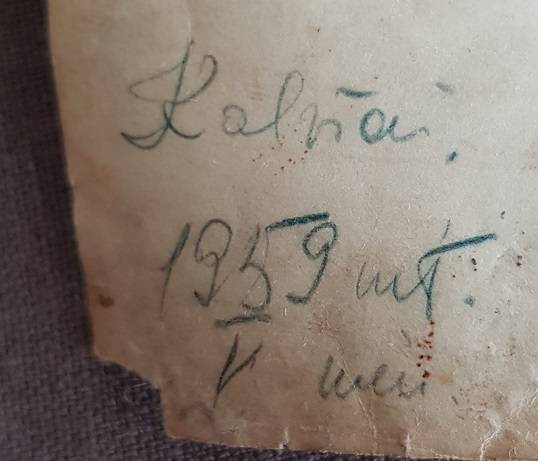 Kalviai.
1959 mt.
V mėn